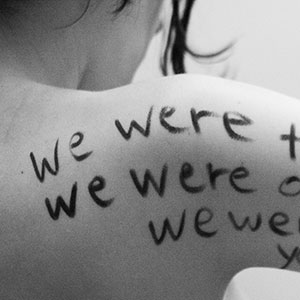 we were
we were
we wer